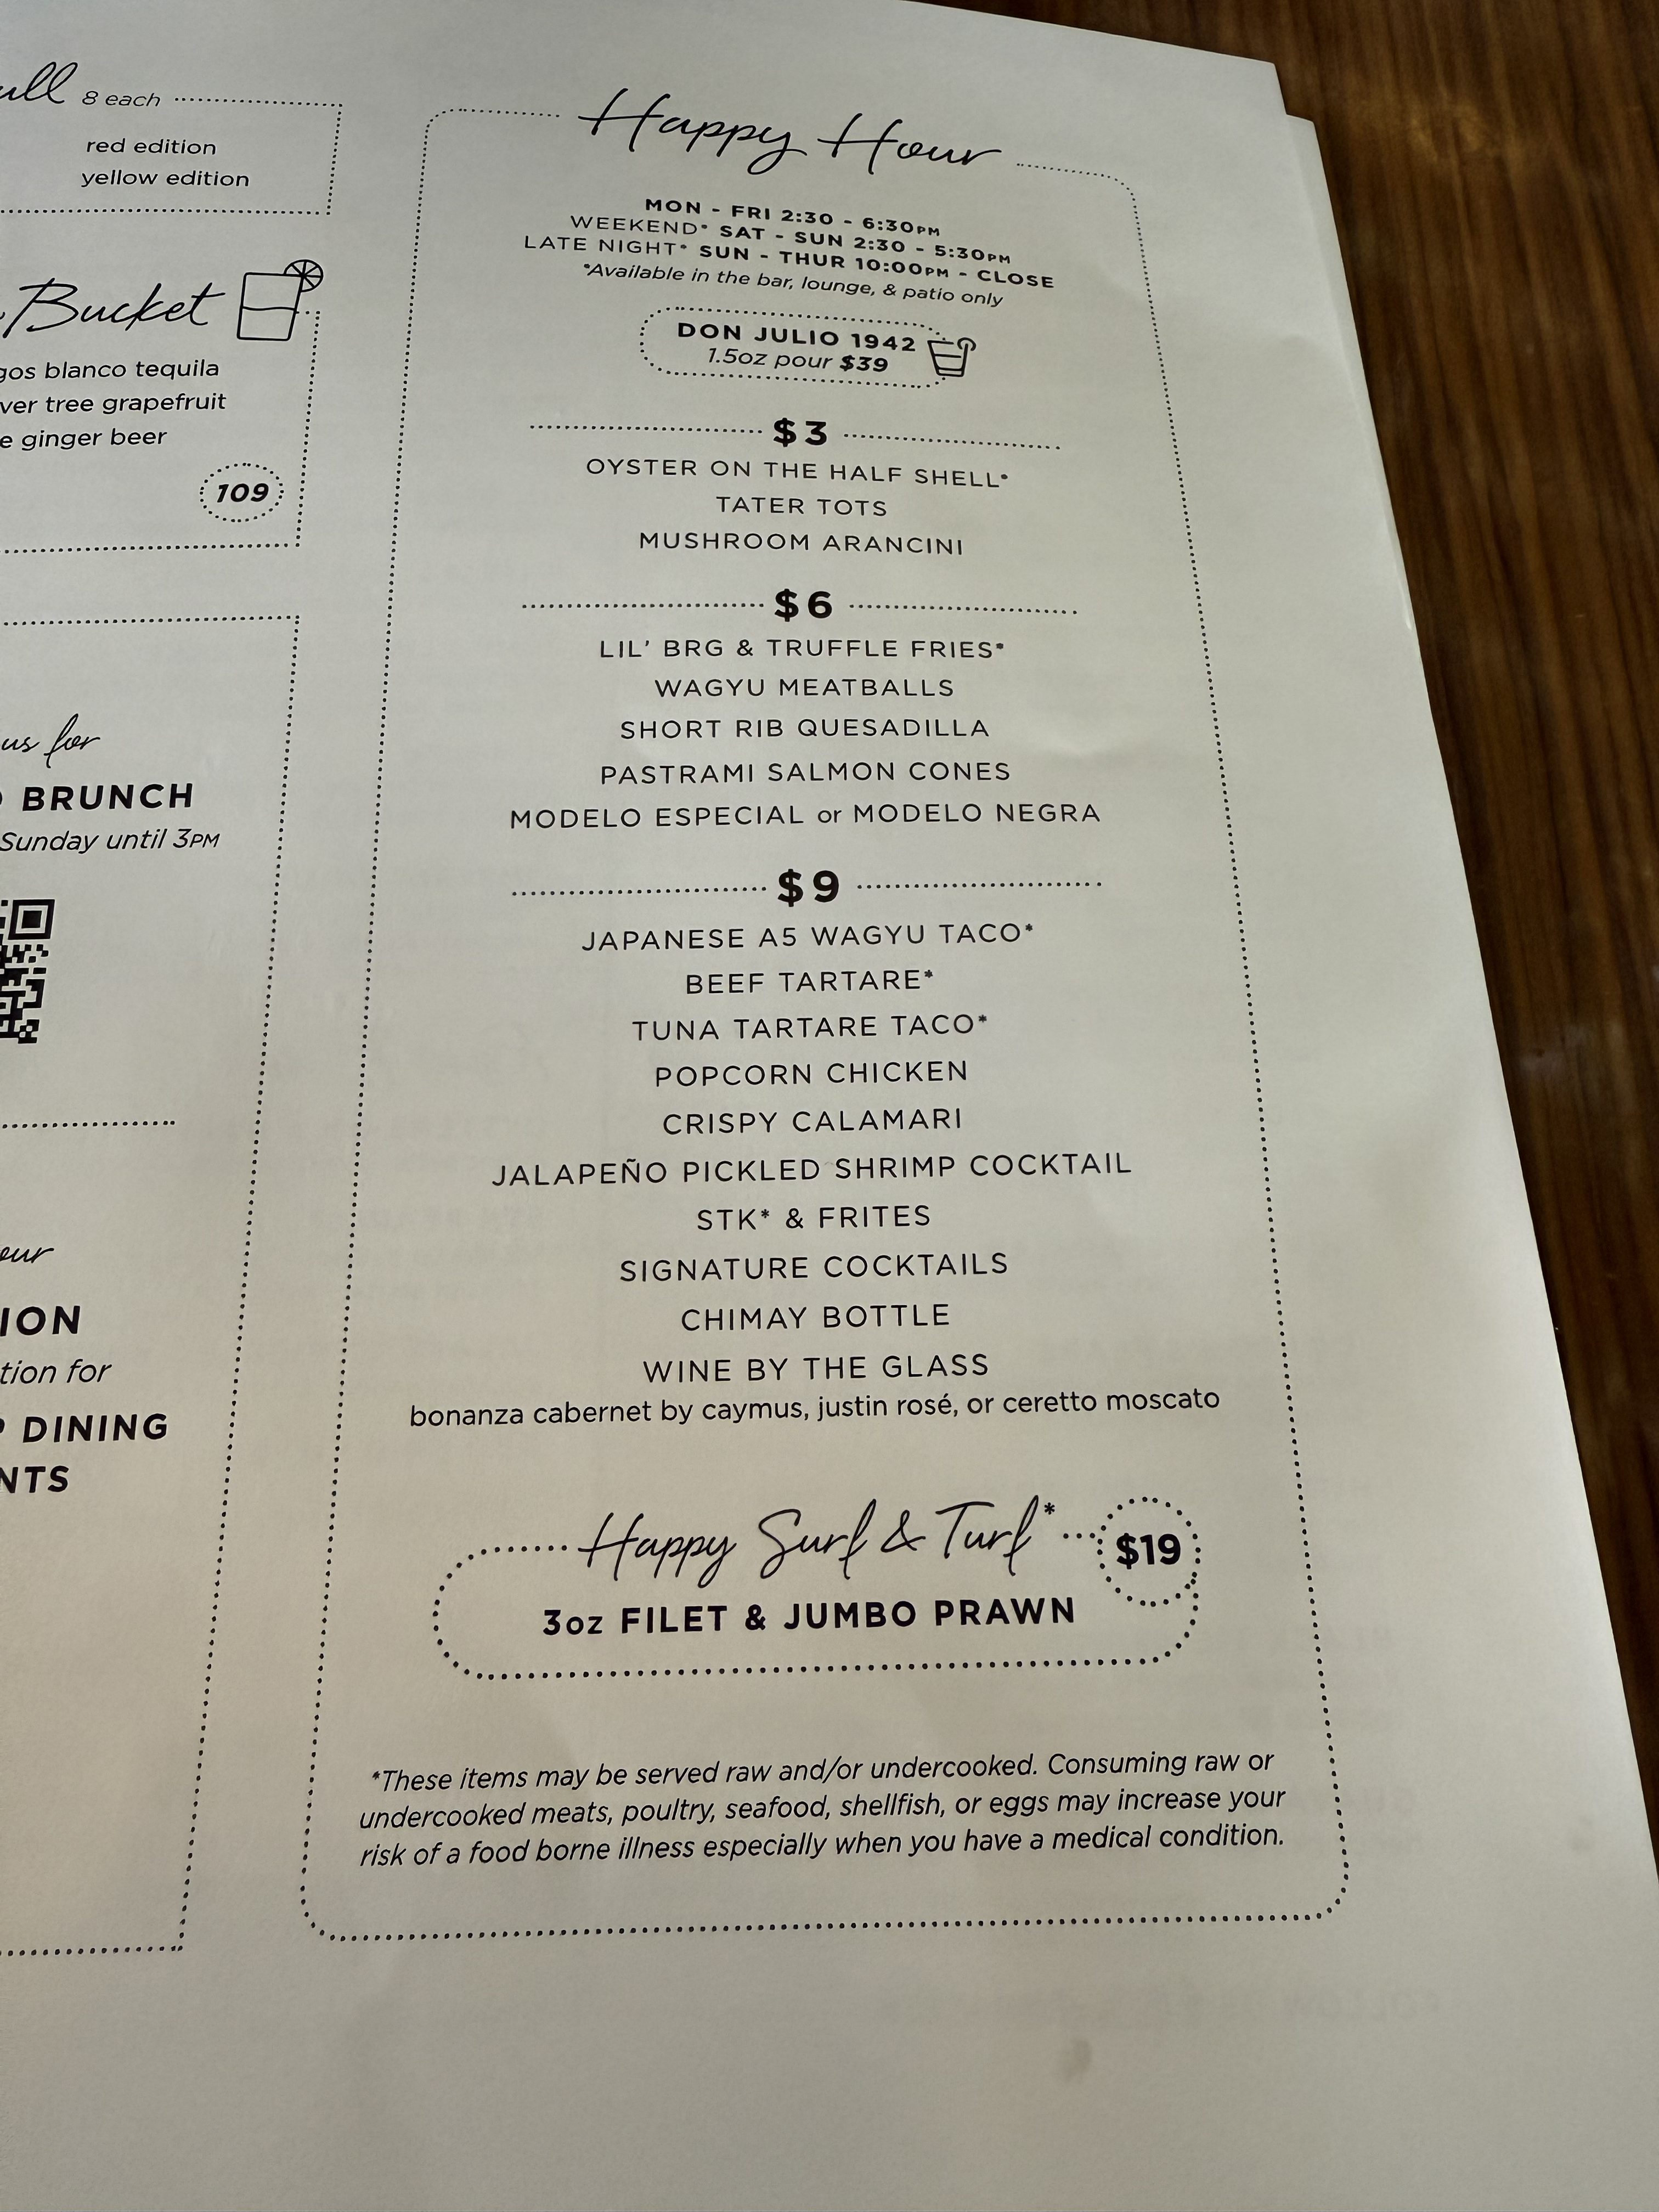 8 each
red edition
yellow edition
Bucket
blanco tequila
tree grapefruit
ginger beer
109
us for
BRUNCH
Sunday until 3PM
for
DINING
Happy Hour
MON - FRI 2:30 - 6:30PM
WEEKEND* SAT - SUN 2:30 - 5:30PM
LATE NIGHT* SUN - THUR 10:00PM - CLOSE
*Available in the bar, lounge, & patio only
DON JULIO 1942
1.5oz pour $39
$3
OYSTER ON THE HALF SHELL*
TATER TOTS
MUSHROOM ARANCINI
$6
LIL' BRG & TRUFFLE FRIES*
WAGYU MEATBALLS
SHORT RIB QUESADILLA
PASTRAMI SALMON CONES
MODELO ESPECIAL or MODELO NEGRA
$9
JAPANESE A5 WAGYU TACO*
BEEF TARTARE*
TUNA TARTARE TACO*
POPCORN CHICKEN
CRISPY CALAMARI
JALAPEÑO PICKLED SHRIMP COCKTAIL
STK* & FRITES
SIGNATURE COCKTAILS
CHIMAY BOTTLE
WINE BY THE GLASS
bonanza cabernet by caymus, justin rosé, or ceretto moscato
Happy Surf & Turf*
$19
3oz FILET & JUMBO PRAWN
*These items may be served raw and/or undercooked. Consuming raw or
undercooked meats, poultry, seafood, shellfish, or eggs may increase your
risk of a food borne illness especially when you have a medical condition.